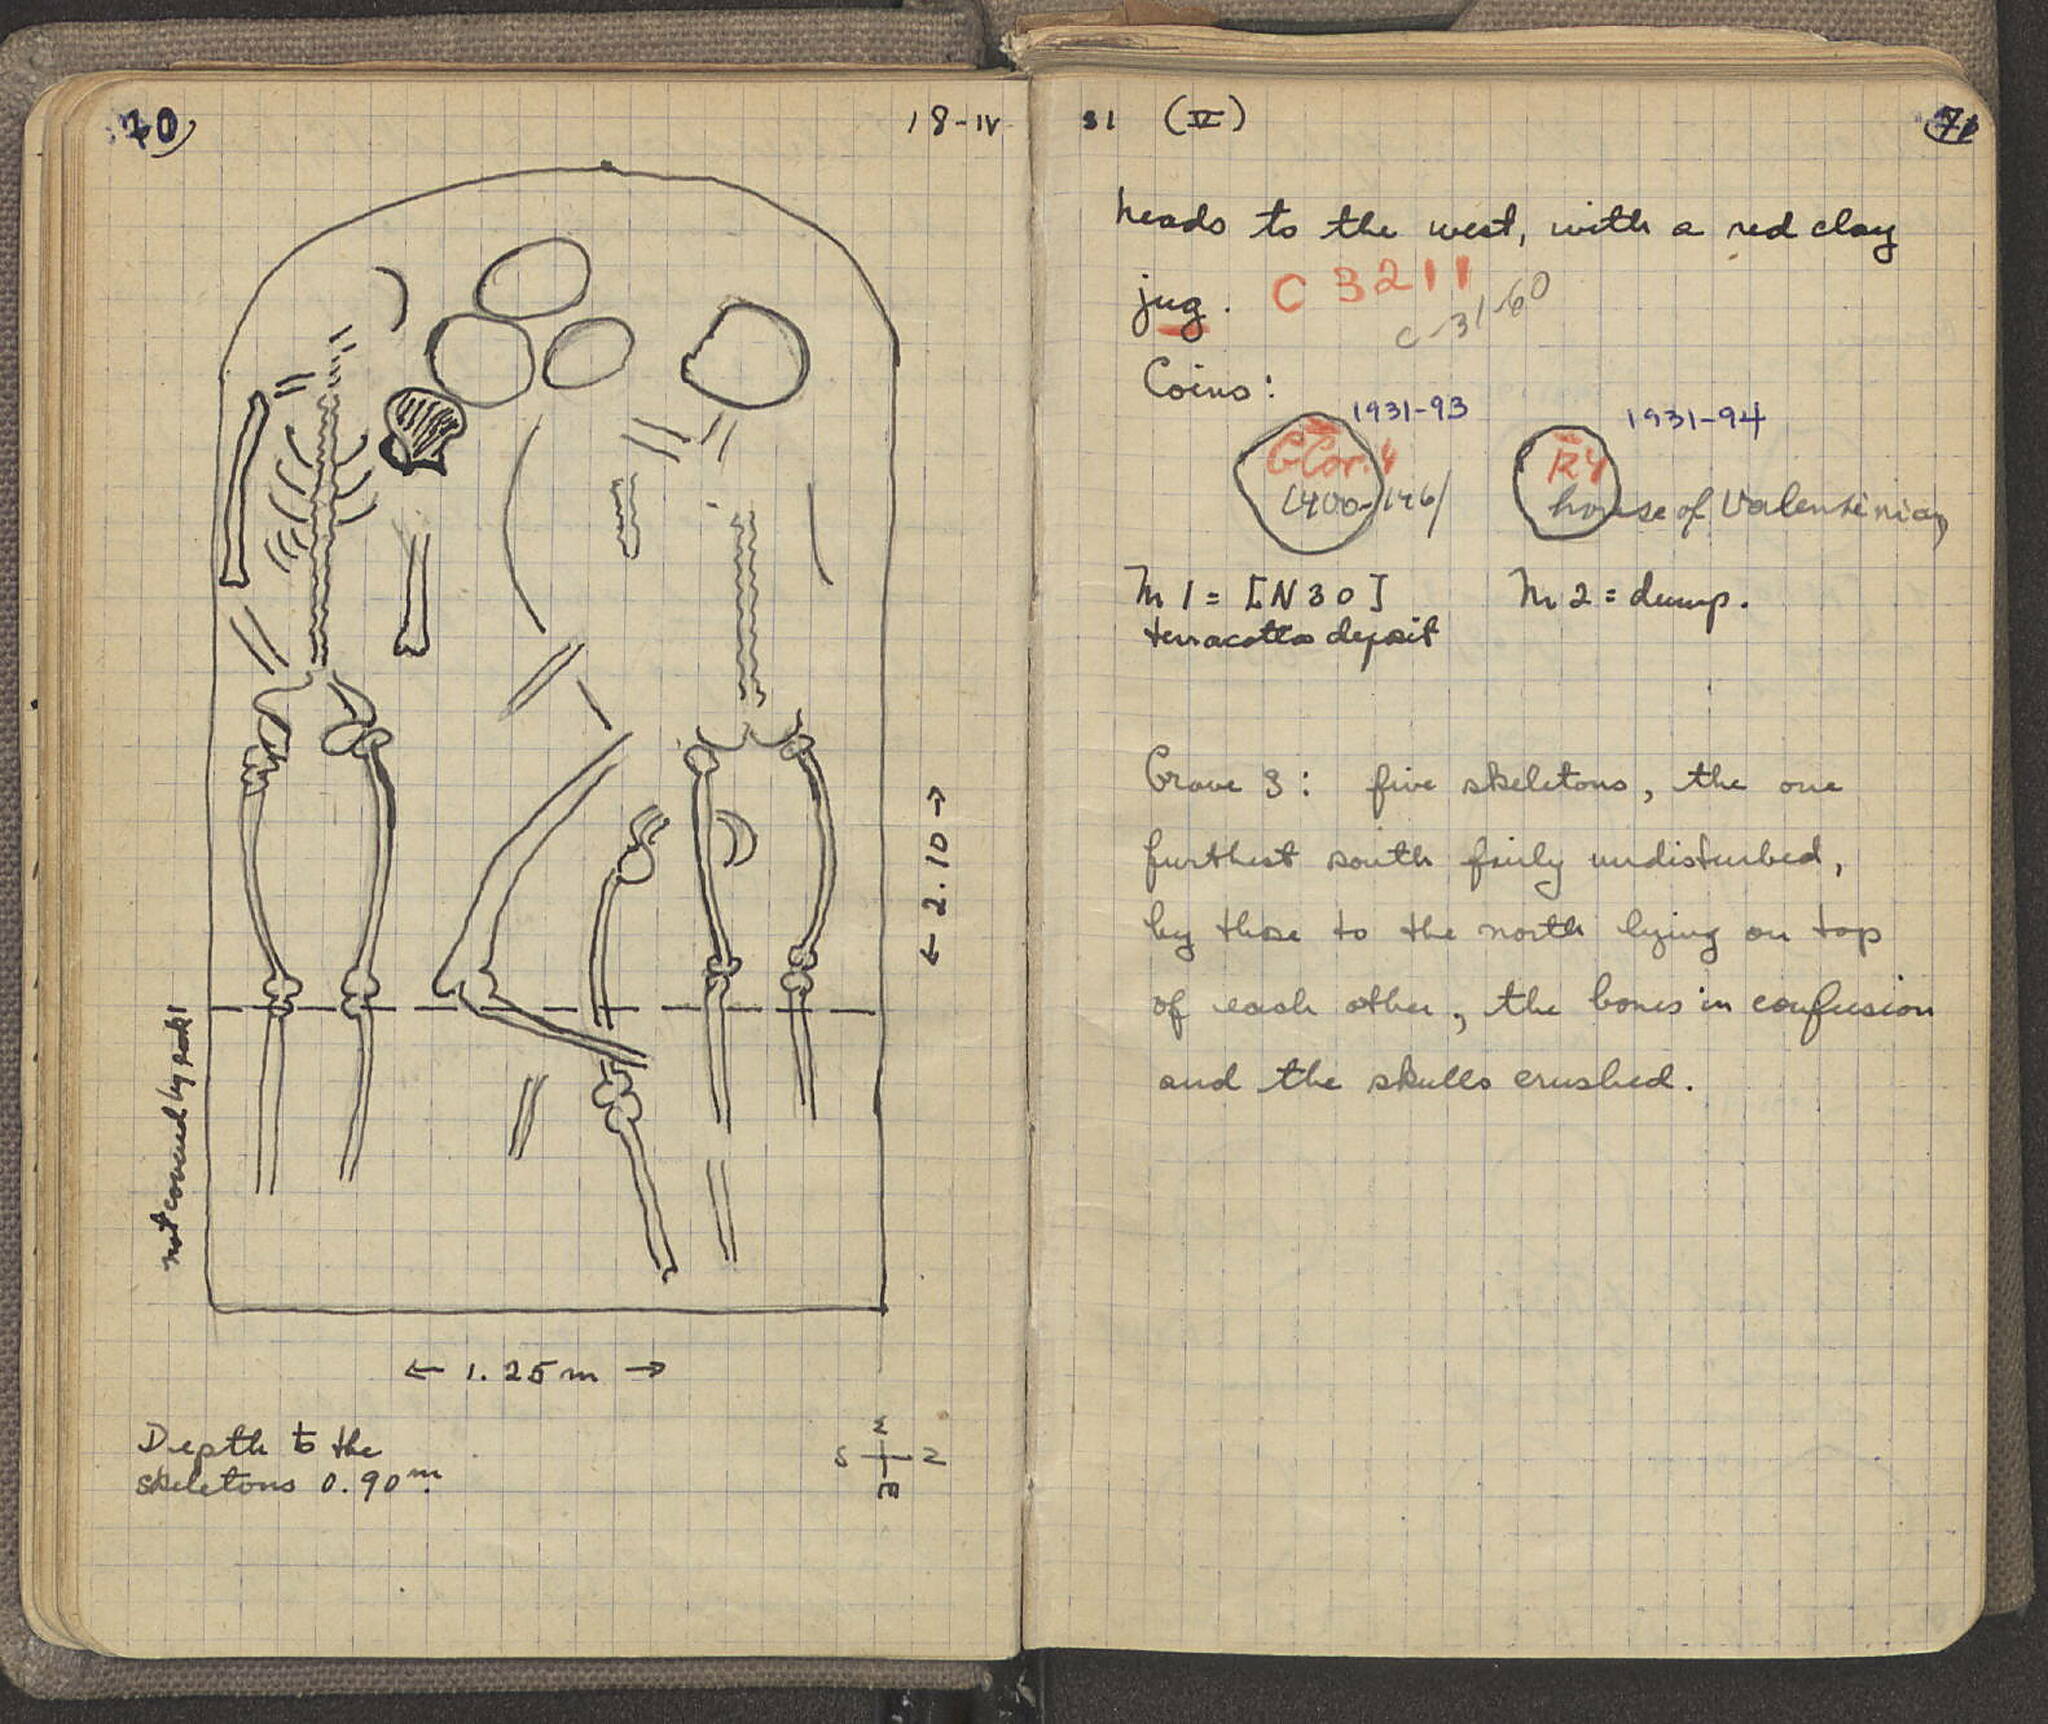 70
18-IV
← 2.10 →
not covered by rock!
← 1.25 m →
Depth to the
skeletons 0.90 m.
W
S N
E
31 (IV)
71
heads to the west, with a red clay
jug. C 3211
C-31-60
Coins:
1931-93 1931-94
G Cor. 4 R4
(400-146) house of Valentinian
M 1 = [N 30] M 2 = dump.
terracotta deposit
Grave 3: five skeletons, the one
furthest south fairly undisturbed,
by those to the north lying on top
of each other, the bones in confusion
and the skulls crushed.